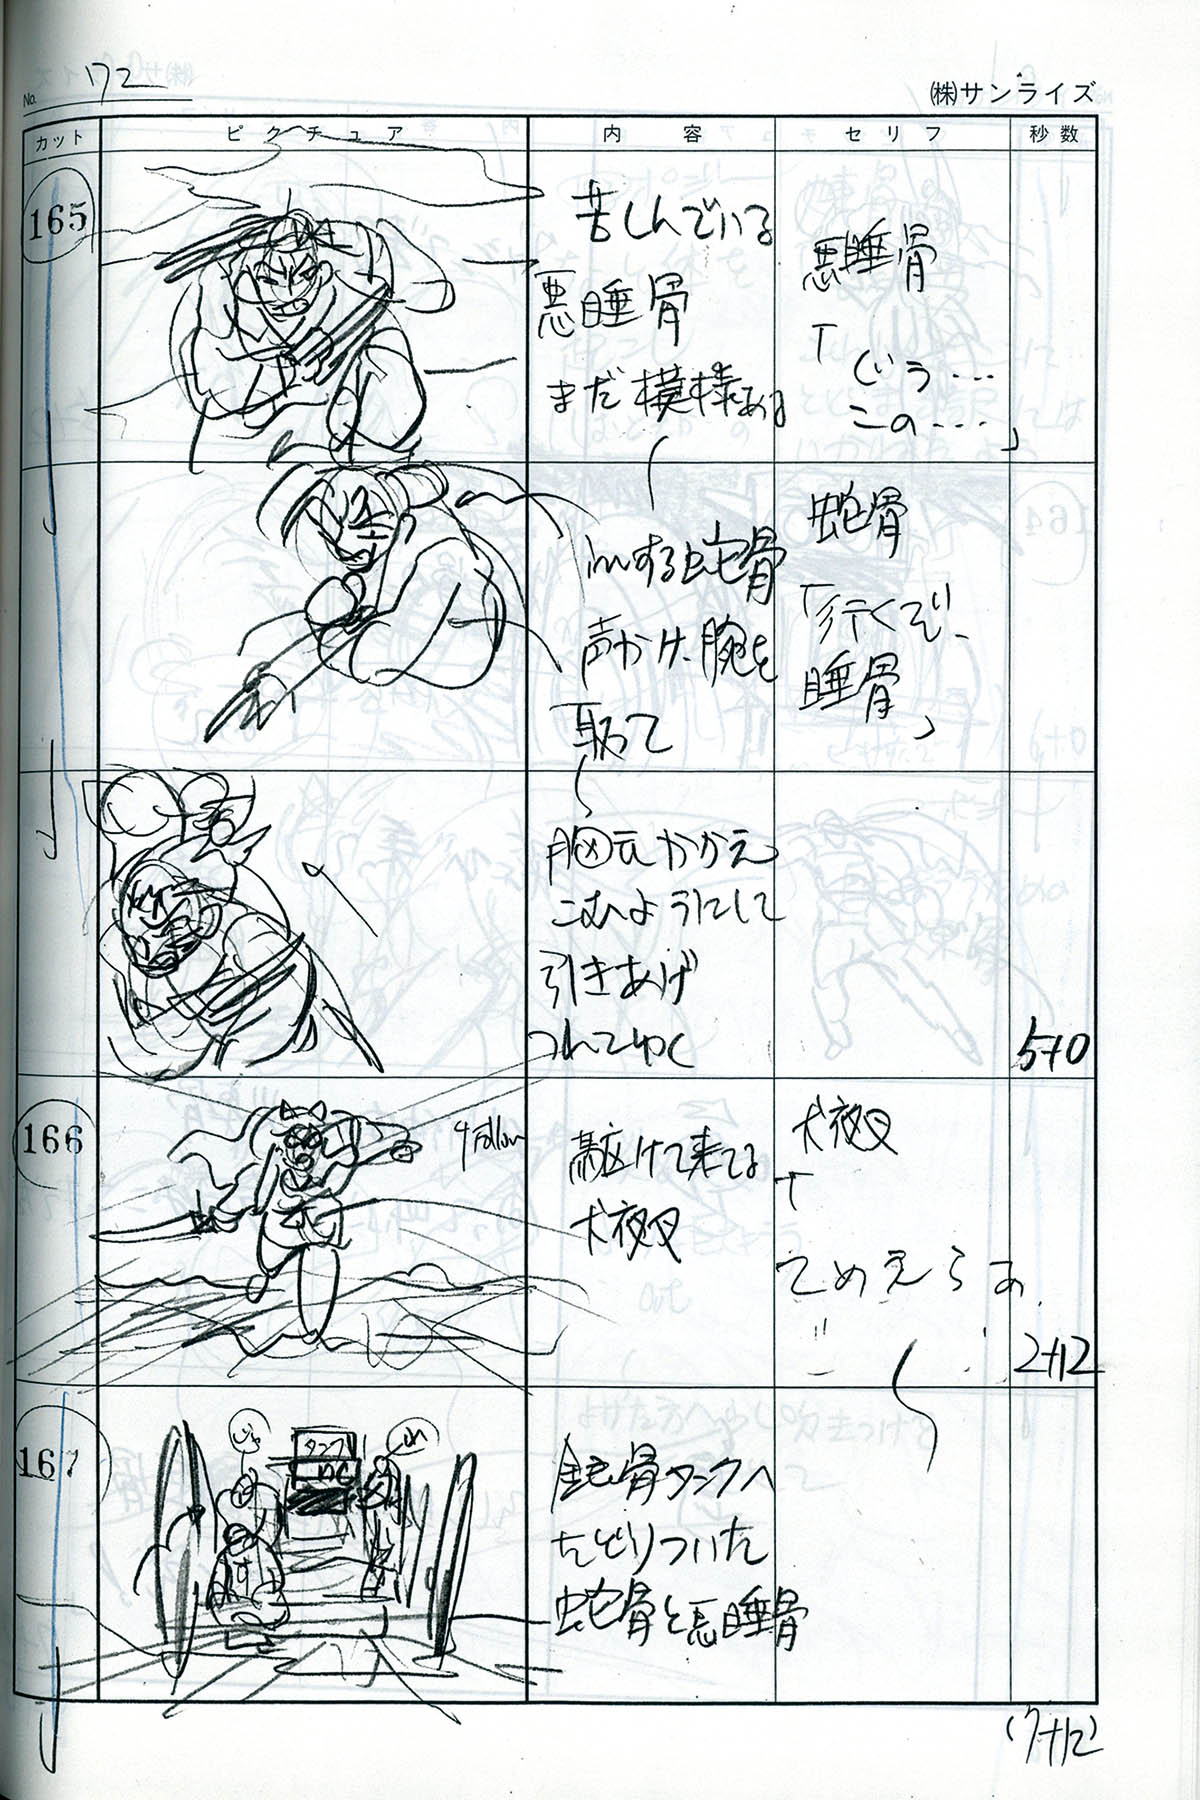 No. 172
㈱サンライズ
カット ピクチュア 内容 セリフ 秒数
165
苦しんでいる
悪睡骨
まだ模様ある
悪睡骨
「ぐぅう…
この…」
inする蛇骨
声かけ、腕を
取って
蛇骨
「行くぞ、
睡骨」
胸元かかえ
こむようにして
引きあげ
つれてゆく
5+0
166
Follow
駆けて来てる
犬夜叉
犬夜叉
「
てめえらぁ
2+12
167
じゃ
タンク
す
銀骨タンクへ
たどりついた
蛇骨と悪睡骨
(7+12)